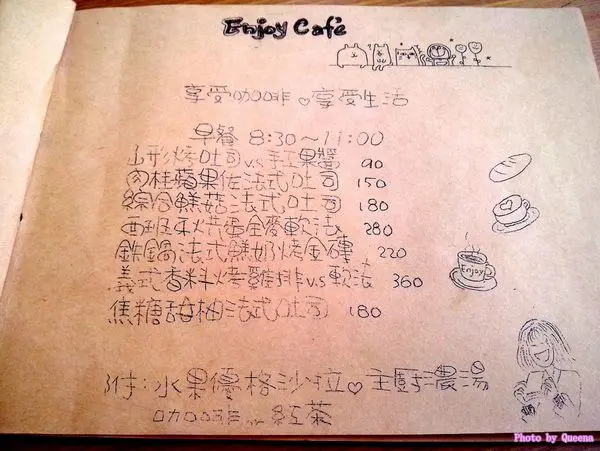 Enjoy Cafe
享受咖啡♡享受生活
早餐 8:30~11:00
山形烤吐司v.s手工果醬 90
肉桂蘋果佐法式吐司 150
綜合鮮菇法式吐司 180
西班牙烘蛋全麥軟法 280
鉄鍋法式鮮奶烤金磚 220
義式香料烤雞排v.s軟法 360
焦糖甜柚法式吐司 180
Enjoy
附:水果優格沙拉♡主廚濃湯
咖啡or紅茶
Photo by Queena